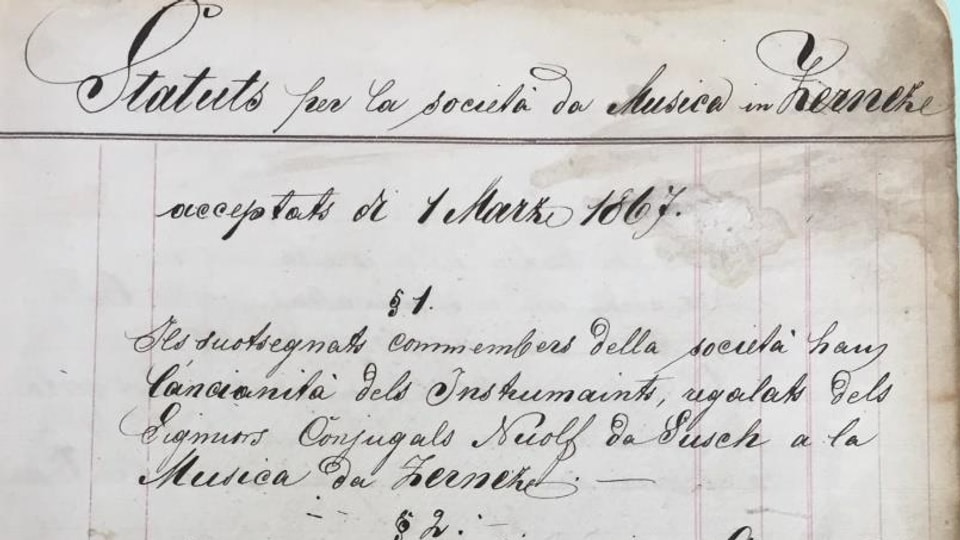 Statuts per la società da Musica in Zernetz
acceptats di 1 Marz 1867.
§ 1.
Ils suotsegnats commembers della società haun
l'ancianità dels Instrumaints, regalats dels
Signuors Conjugals Nuolf da Susch a la
Musica da Zernetz. —
§ 2.